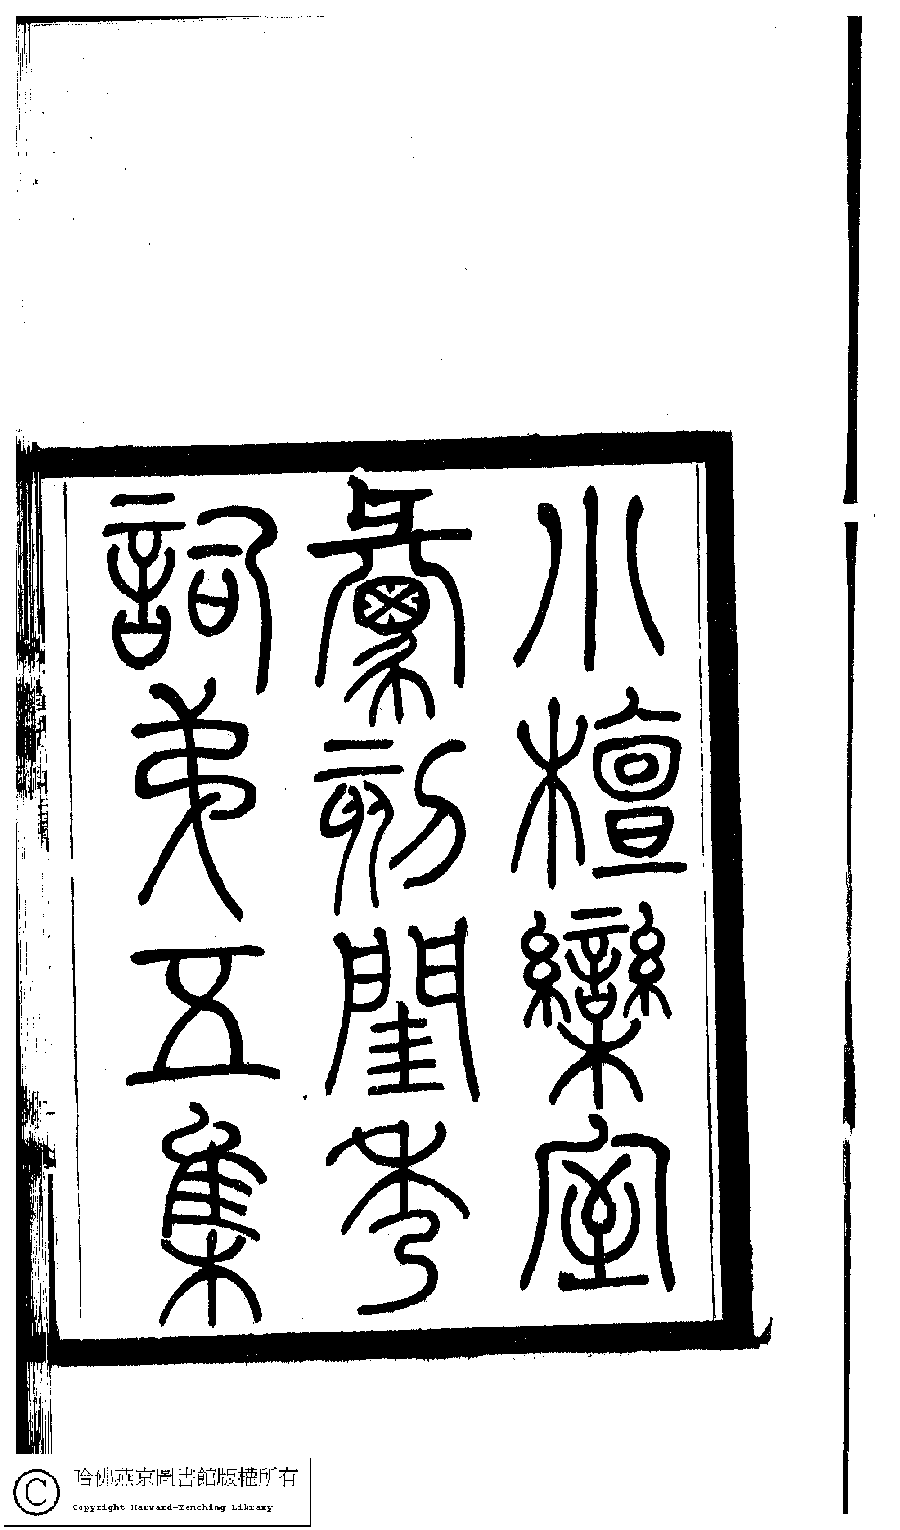 小檀欒室
彙刻閨秀
詞弟五集
哈佛燕京圖書館版權所有
Copyright Harvard-Yenching Library